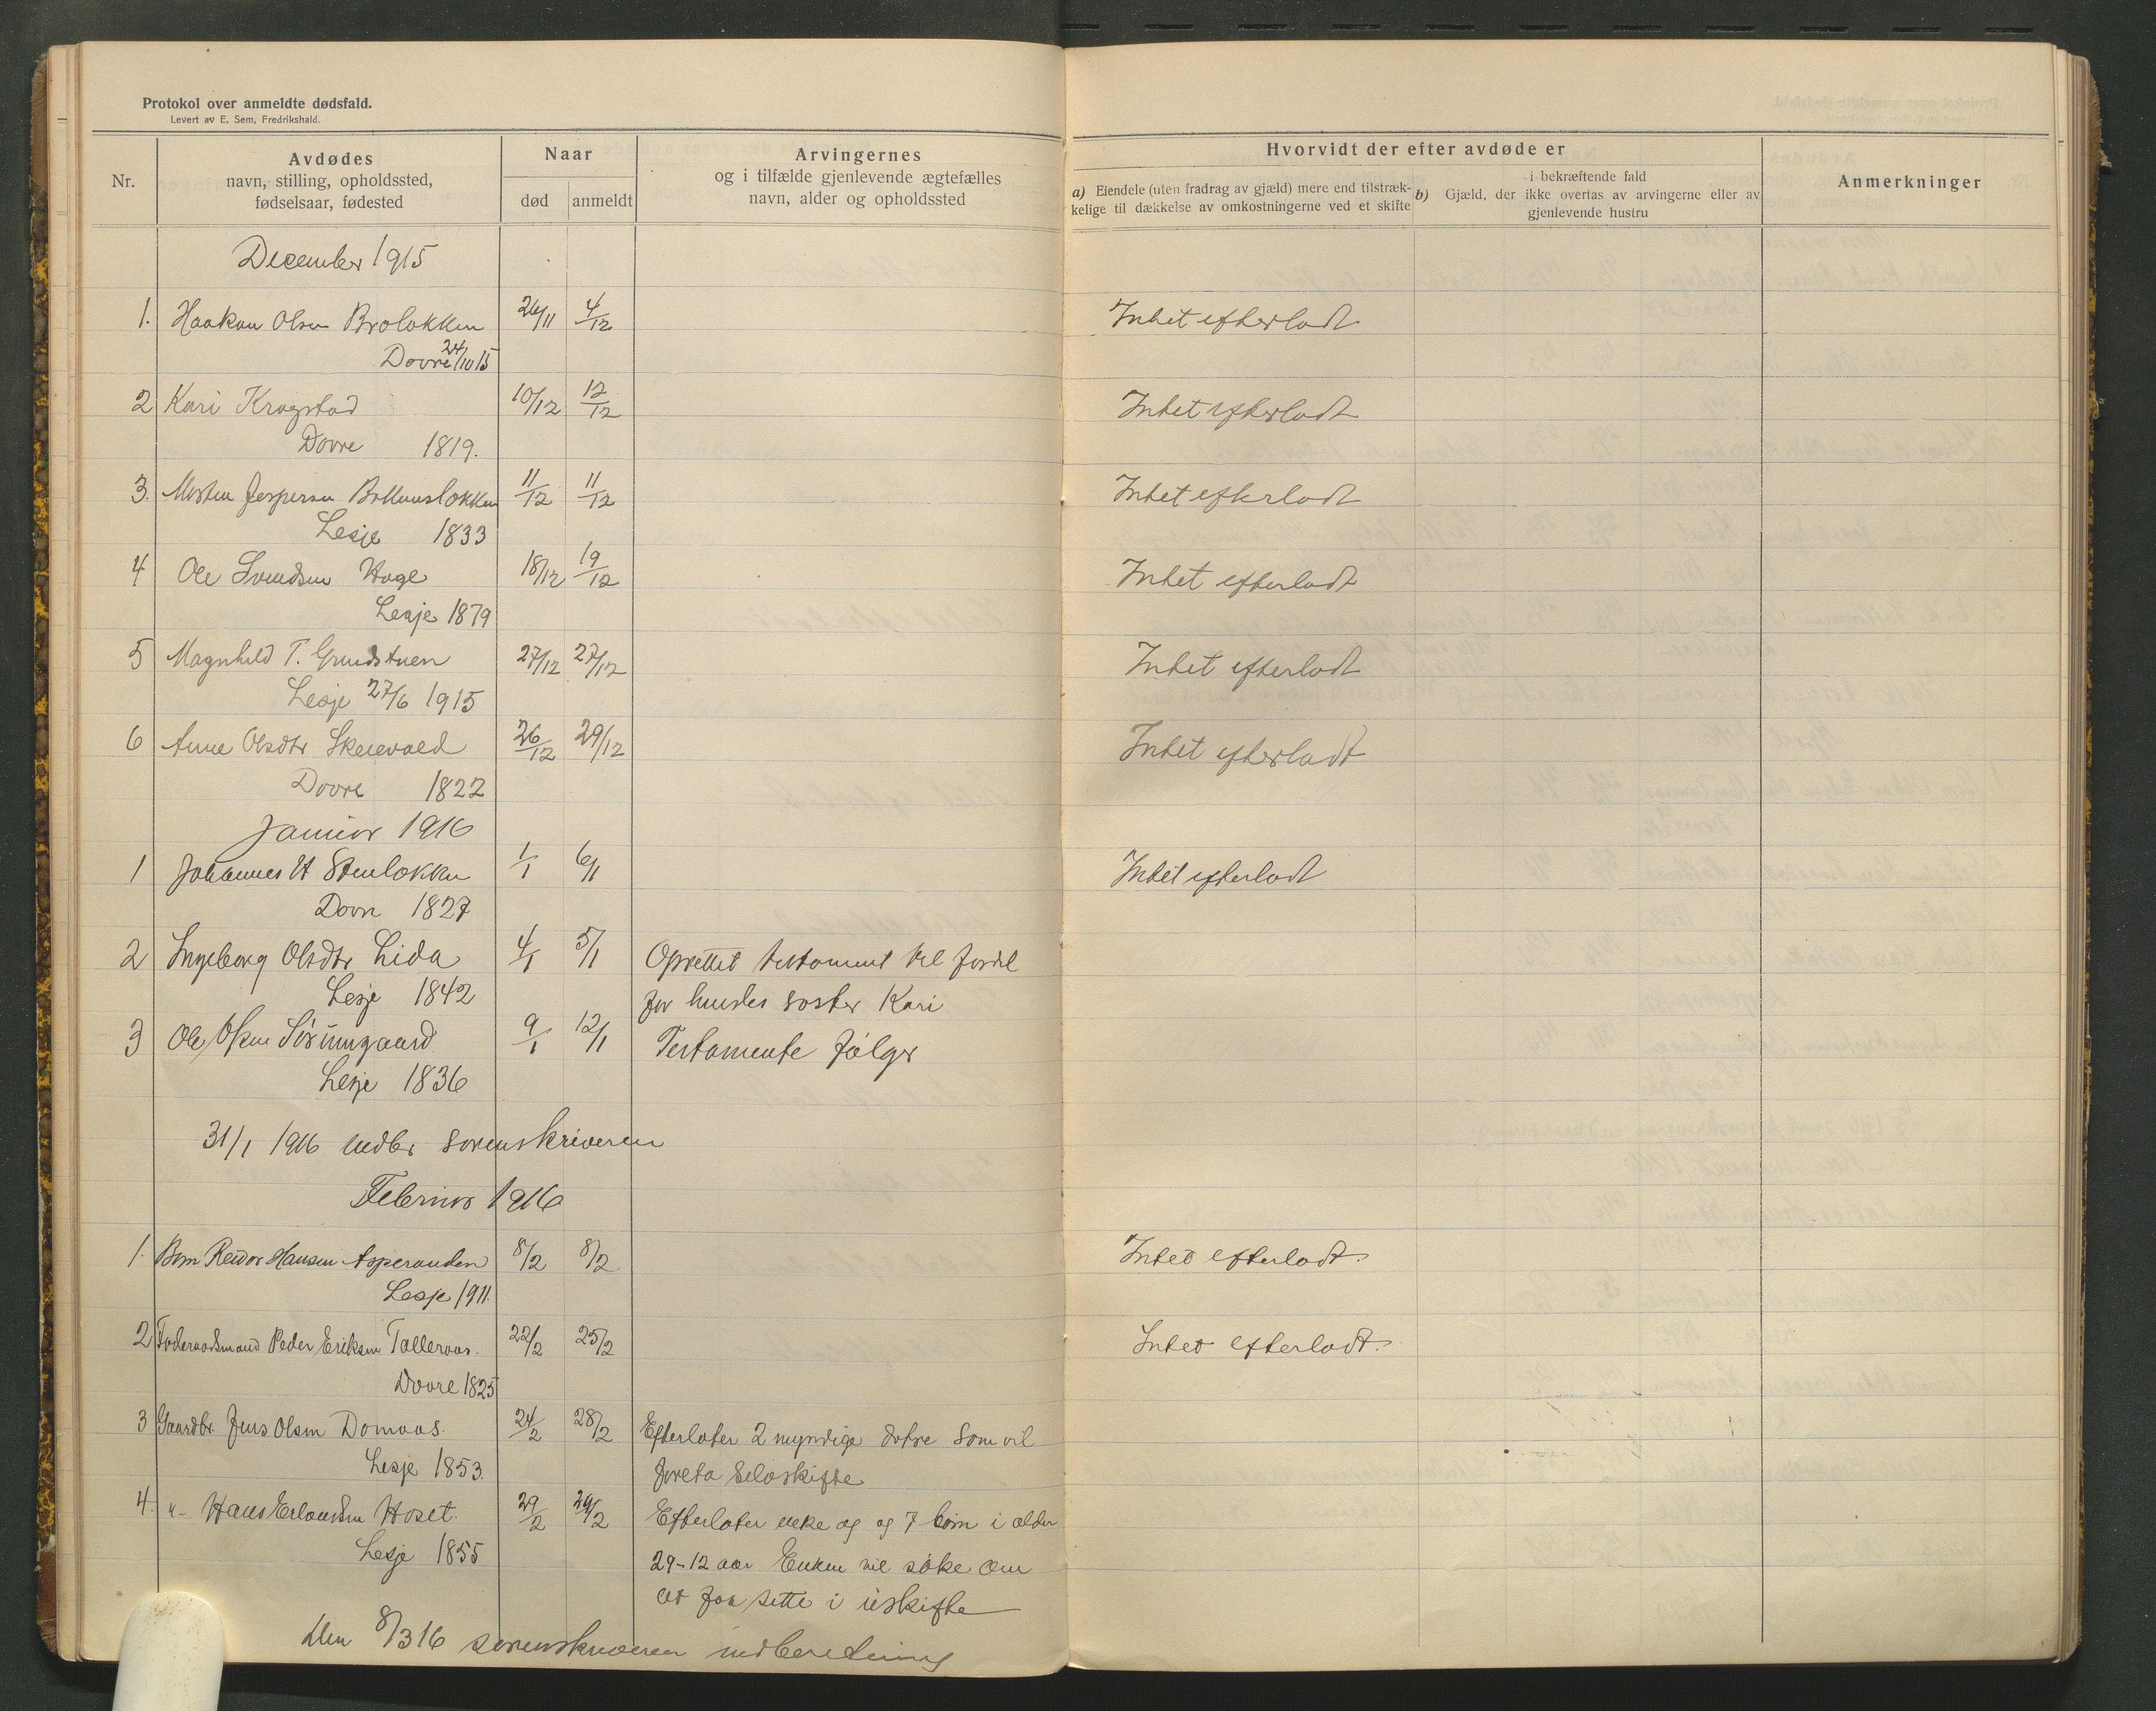 Protokol over anmeldte dødsfald.
Levert av E. Sem, Fredrikshald.
Nr.
Avdødes
navn, stilling, opholdssted,
fødselsaar, fødested
Naar
død anmeldt
Arvingernes
og i tilfælde gjenlevende ægtefælles
navn, alder og opholdssted
Hvorvidt der efter avdøde er
a) Eiendele (uten fradrag av gjæld) mere end tilstræk-
kelige til dækkelse av omkostningerne ved et skifte
i bekræftende fald
b) Gjæld, der ikke overtas av arvingerne eller av
gjenlevende hustru
Anmerkninger
December 1915
1. Haakon Olsen Broløkken 26/11 4/12 Intet efterladt
Dovre 24/10 15
2 Kari Krogstad 10/12 12/12 Intet efterladt
Dovre 1819.
3. Morten Jespersen 11/12 11/12 Intet efterladt
Lesje 1833
4 Ole Svendsen Hage 18/12 19/12 Intet efterladt
Lesje 1879
5 Magnhild T. Grundstuen 27/12 27/12 Intet efterladt
Lesje 27/6 1915
6 Anne Olsdtr Skeievold 26/12 29/12 Intet efterladt
Dovre 1822
Januar 1916
1 Johannes H Stenløkken 1/1 6/1 Intet efterladt
Dovre 1827
2 Ingeborg Olsdtr Lida 4/1 5/1 Oprettet testament til fordel
Lesje 1842 for hendes søster Kari
3 Ole Olsen Sørumgaard 9/1 12/1 Testamente følger
Lesje 1836
31/1 1916 indbr sorenskriveren
Februar 1916
1. Barn Reidar Hansen Asperanden 8/2 8/2 Intet efterladt.
Lesje 1911.
2 Føderaadsmand Peder Eriksen Talleraas. 22/2 25/2 Intet efterladt.
Dovre 1825
3 Gaardbr. Jens Olsen Domaas. 24/2 28/2 Efterlater 2 myndige døtre som vil
Lesje 1853. foreta selvskifte
4. "- Hans Erlandsen Hoset. 29/2 29/2 Efterlater enke og og 7 børn i alder
Lesje 1855 29-12 aar Enken vil søke om
at faa sitte i uskifte
Den 8/3 16 sorenskriveren indberetning